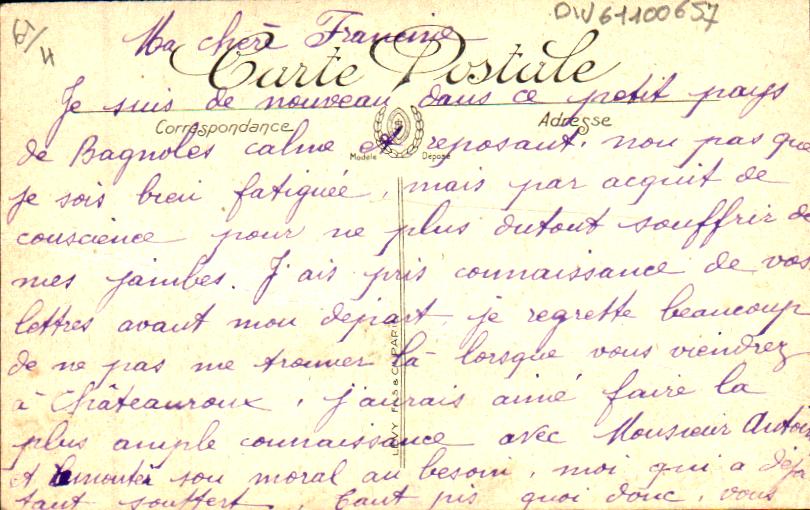 61/4
DW61100657
Ma chère Francine
Carte Postale
Je suis de nouveau dans ce petit pays
Correspondance
Adresse
de Bagnoles calme et reposant, non pas que
Modèle Déposé
je sois bien fatiguée, mais par acquit de
conscience pour ne plus dutout souffrir de
mes jambes. J'ais pris connaissance de vos
lettres avant mon départ, je regrette beaucoup
de ne pas me trouver là lorsque vous viendrez
à Châteauroux, j'aurais aimé faire la
plus ample connaissance avec Monsieur
et remonter son moral au besoin, moi qui a déjà
tant souffert, tant pis, quoi donc, vous
LEVY FILS & Cie PARIS